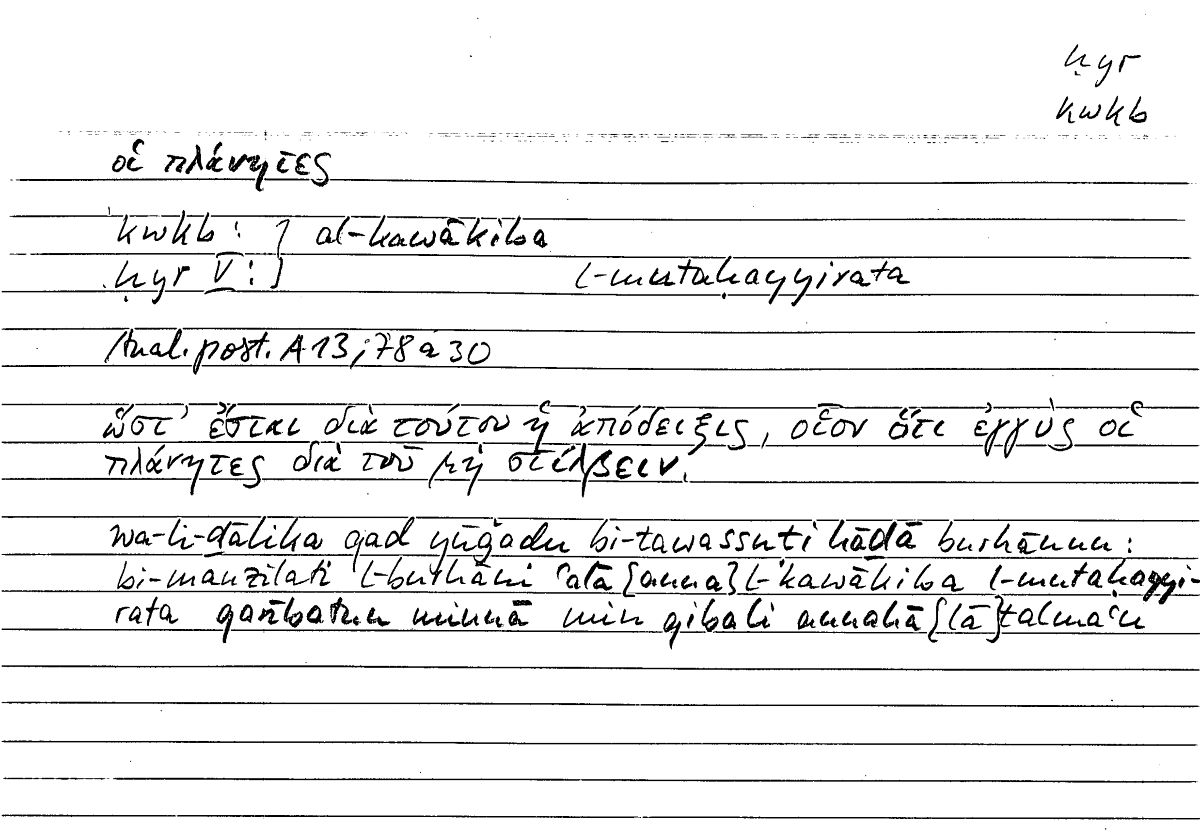 ḥyr
kwkb
οἱ πλάνητες
kwkb : } al-kawākiba
ḥyr V : } l-mutaḥayyirata
Anal. post. A 13; 78 a 30
ὥστ' ἔσται διὰ τούτου ἡ ἀπόδειξις, οἷον ὅτι ἐγγὺς οἱ
πλάνητες διὰ τοῦ μὴ στίλβειν.
wa-li-ḏālika qad yūǧadu bi-tawassuṭi hāḏā burhānun :
bi-manzilati l-burhāni ʿalā {anna} l-kawākiba l-mutaḥayyi-
rata qarībatun minnā min qibali annahā {lā} talmaʿu